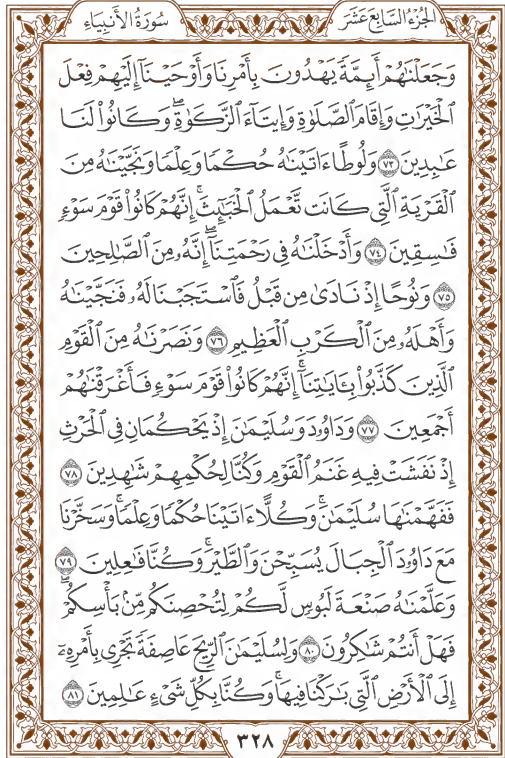 الجزء السابع عشر
سورة الأنبياء
وَجَعَلْنَٰهُمْ أَئِمَّةً يَهْدُونَ بِأَمْرِنَا وَأَوْحَيْنَآ إِلَيْهِمْ فِعْلَ
ٱلْخَيْرَٰتِ وَإِقَامَ ٱلصَّلَوٰةِ وَإِيتَآءَ ٱلزَّكَوٰةِۖ وَكَانُوا۟ لَنَا
عَٰبِدِينَ ٧٣ وَلُوطًا ءَاتَيْنَٰهُ حُكْمًا وَعِلْمًا وَنَجَّيْنَٰهُ مِنَ
ٱلْقَرْيَةِ ٱلَّتِى كَانَت تَّعْمَلُ ٱلْخَبَٰٓئِثَۚ إِنَّهُمْ كَانُوا۟ قَوْمَ سَوْءٍ
فَٰسِقِينَ ٧٤ وَأَدْخَلْنَٰهُ فِى رَحْمَتِنَآۖ إِنَّهُۥ مِنَ ٱلصَّٰلِحِينَ
٧٥ وَنُوحًا إِذْ نَادَىٰ مِن قَبْلُ فَٱسْتَجَبْنَا لَهُۥ فَنَجَّيْنَٰهُ
وَأَهْلَهُۥ مِنَ ٱلْكَرْبِ ٱلْعَظِيمِ ٧٦ وَنَصَرْنَٰهُ مِنَ ٱلْقَوْمِ
ٱلَّذِينَ كَذَّبُوا۟ بِـَٔايَٰتِنَآۚ إِنَّهُمْ كَانُوا۟ قَوْمَ سَوْءٍ فَأَغْرَقْنَٰهُمْ
أَجْمَعِينَ ٧٧ وَدَاوُۥدَ وَسُلَيْمَٰنَ إِذْ يَحْكُمَانِ فِى ٱلْحَرْثِ
إِذْ نَفَشَتْ فِيهِ غَنَمُ ٱلْقَوْمِ وَكُنَّا لِحُكْمِهِمْ شَٰهِدِينَ ٧٨
فَفَهَّمْنَٰهَا سُلَيْمَٰنَۚ وَكُلًّا ءَاتَيْنَا حُكْمًا وَعِلْمًاۚ وَسَخَّرْنَا
مَعَ دَاوُۥدَ ٱلْجِبَالَ يُسَبِّحْنَ وَٱلطَّيْرَۚ وَكُنَّا فَٰعِلِينَ ٧٩
وَعَلَّمْنَٰهُ صَنْعَةَ لَبُوسٍ لَّكُمْ لِتُحْصِنَكُم مِّنۢ بَأْسِكُمْۖ
فَهَلْ أَنتُمْ شَٰكِرُونَ ٨٠ وَلِسُلَيْمَٰنَ ٱلرِّيحَ عَاصِفَةً تَجْرِى بِأَمْرِهِۦٓ
إِلَى ٱلْأَرْضِ ٱلَّتِى بَٰرَكْنَا فِيهَاۚ وَكُنَّا بِكُلِّ شَىْءٍ عَٰلِمِينَ ٨١
٣٢٨